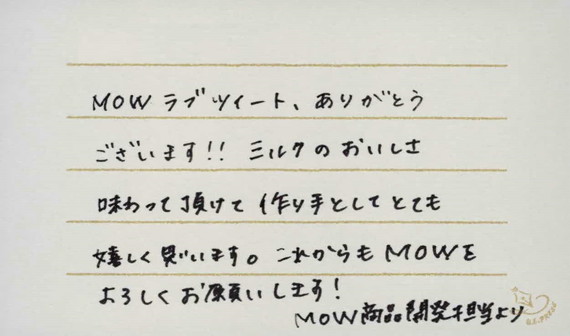 MOWラブツイート、ありがとう
ございます!! ミルクのおいしさ
味わって頂けて作り手としてとても
嬉しく思います。これからもMOWを
よろしくお願いします!
MOW商品開発担当より
G.C.PRESS